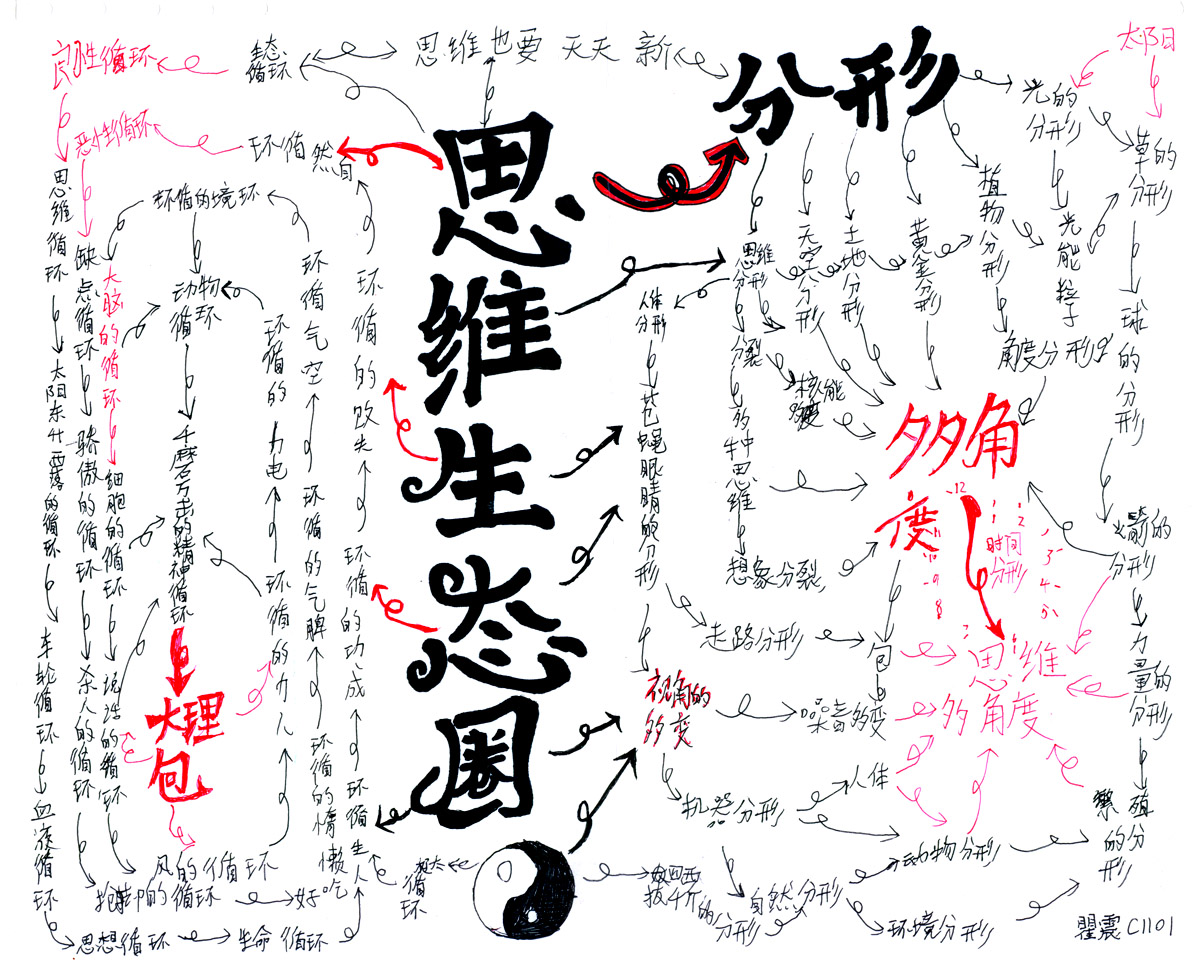 思维生态圈
分形
思维也要天天新
生态循环
良性循环
恶性循环
自然循环
思维循环
太阳东升西落的循环
车轮循环
血液循环
思想循环
生命循环
缺点循环
骄傲的循环
杀人的循环
大脑的循环
细胞的循环
环境的循环
动物循环
千磨万击的精神循环
大理包
风的循环
好吃懒惰的循环
脾气的循环
空气循环
人力的循环
电力的循环
人生循环
成功的循环
失败的循环
循环
太阳
光的分形
草的分形
光能粒子
植物分形
黄金分形
土地分形
天空分形
思维分形
人体分形
苍蝇眼睛的分形
分裂
多种思维
想象分裂
核能
角度分形
球的分形
火箭的分形
力量的分形
繁殖的分形
多角度
12
1
2
3
4
5
6
7
8
9
10
11
时间分形
思维多角度
走路分形
包
视角的多变
噪音多变
机器分形
人体
动物分形
自然分形
环境分形
瞿震C1101